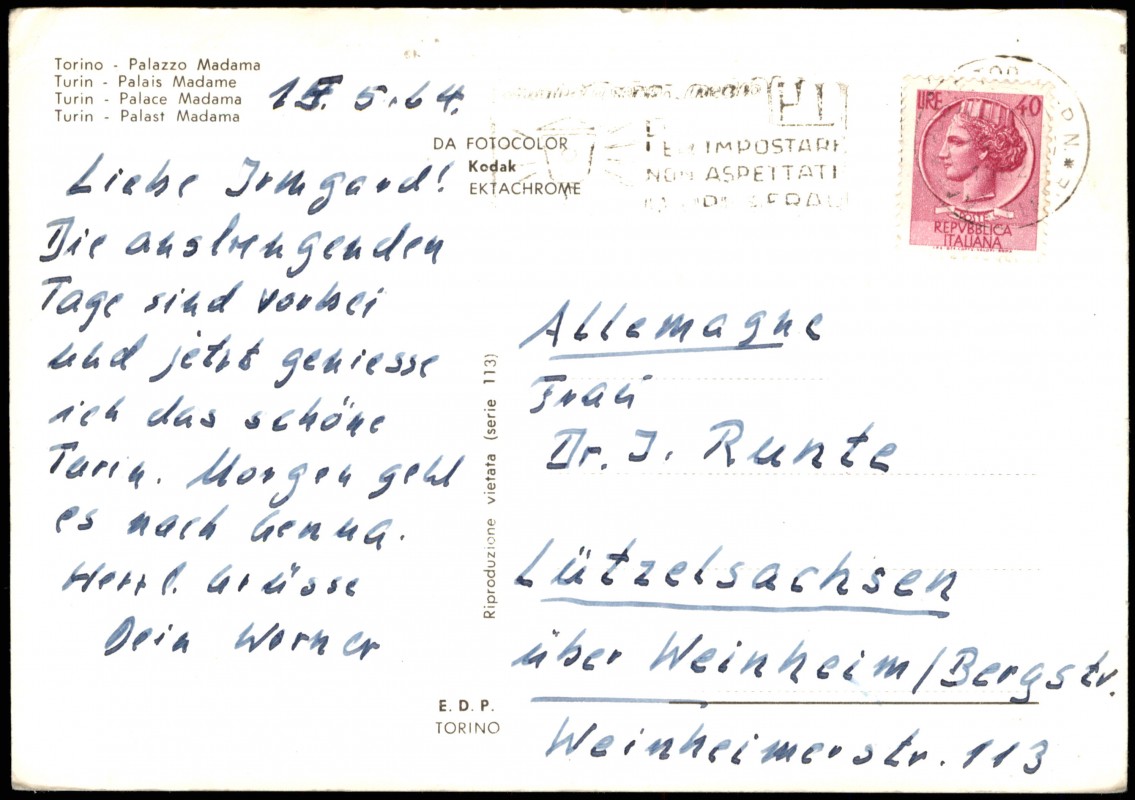 Torino - Palazzo Madama
Turin - Palais Madame
Turin - Palace Madama
Turin - Palast Madama
5.64.
DA FOTOCOLOR
Kodak
EKTACHROME
PER IMPOSTARE
NON ASPETTATE
LIRE 40
POSTE
REPVBBLICA
ITALIANA
Liebe Irmgard!
Die anstrengenden
Tage sind vorbei
und jetzt geniesse
ich das schöne
Turin. Morgen geht
es nach Genua.
Herzl. Grüsse
Dein Werner
Riproduzione vietata (serie 113)
Allemagne
Frau
Dr. I. Runte
Lützelsachsen
über Weinheim/Bergstr.
Weinheimerstr. 113
E. D. P.
TORINO